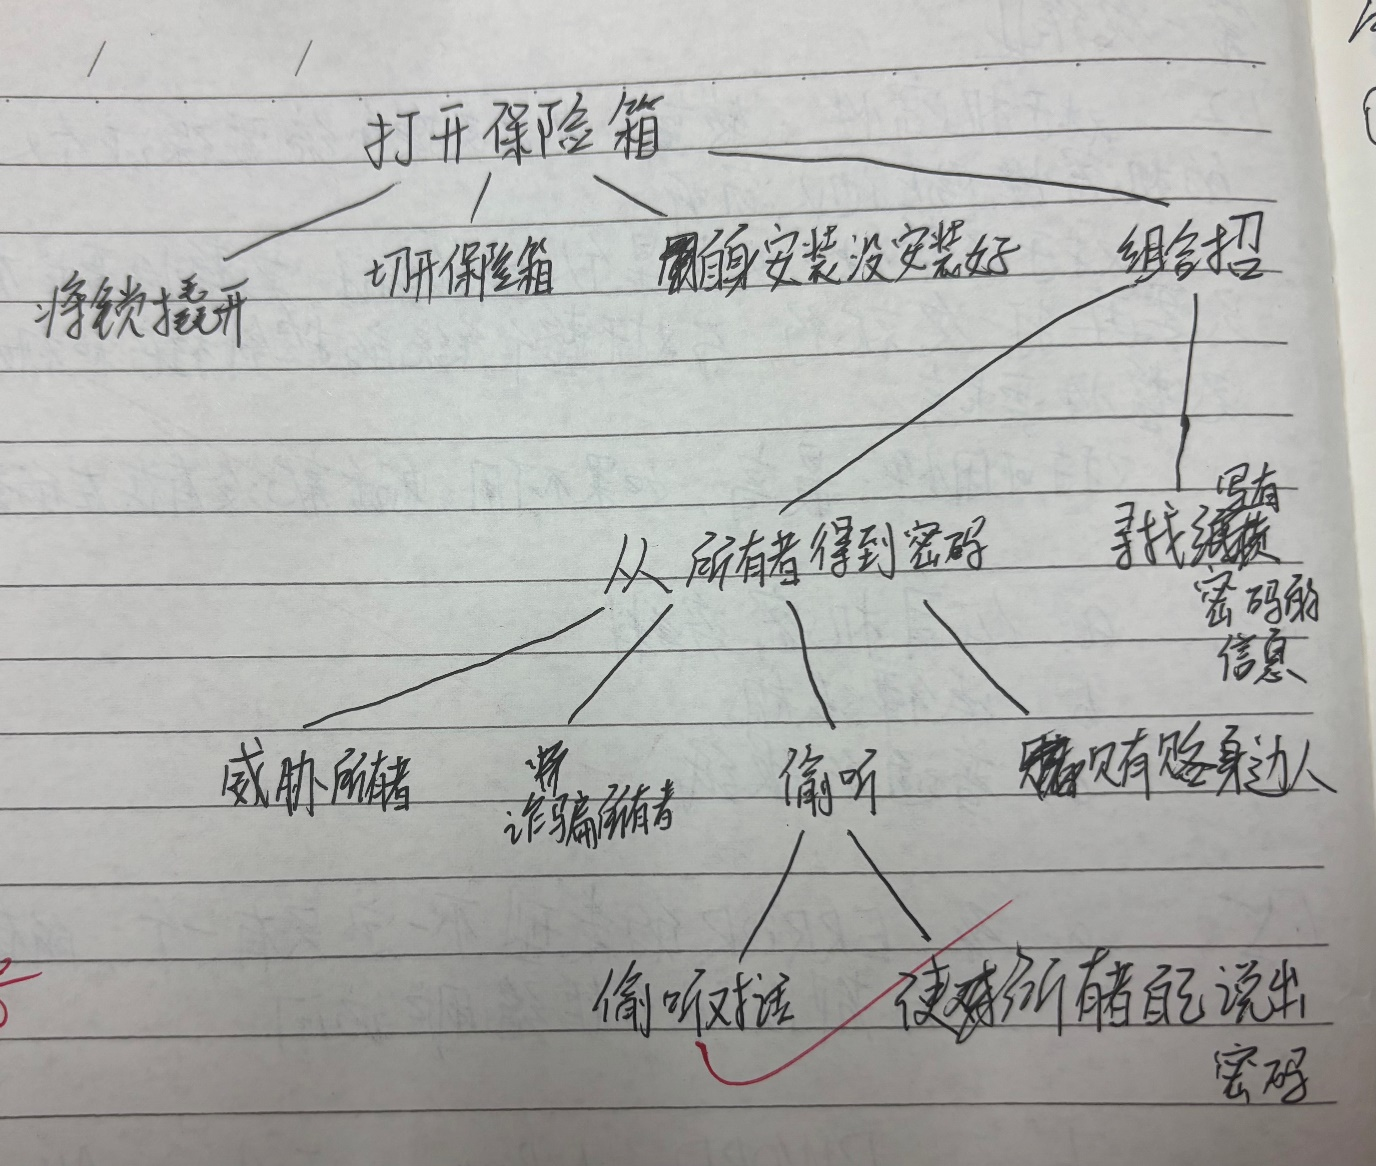 打开保险箱
将锁撬开
切开保险箱
自身安装没安装好
组合招
从所有者得到密码
寻找写有
密码的
信息
威胁所有者
诈骗所有者
偷听
贿赂身边人
偷听对话
使所有者自己说出
密码